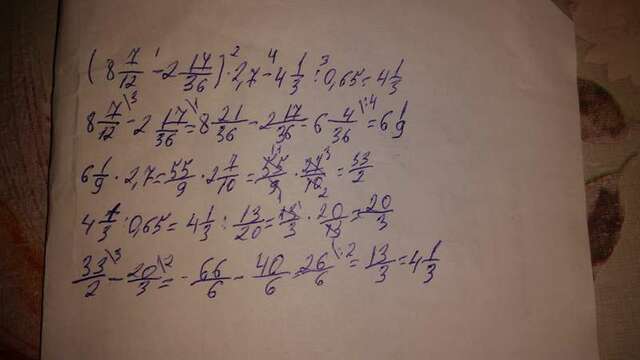 (8 7/12 - 2 17/36) · 2,7 - 4 1/3 : 0,65 = 4 1/3
8 7/12 \3 - 2 17/36 \1 = 8 21/36 - 2 17/36 = 6 4/36 \:4 = 6 1/9
6 1/9 · 2,7 = 55/9 · 2 7/10 = 55/9 · 27/10 = 33/2
4 1/3 : 0,65 = 4 1/3 : 13/20 = 13/3 · 20/13 = 20/3
33/2 \3 - 20/3 \2 = - 66/6 - 40/6 = 26/6 \:2 = 13/3 = 4 1/3